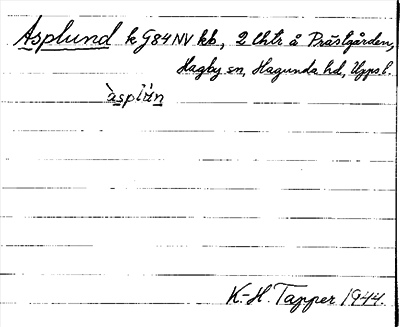 Asplund k G84NV kb, 2 lhtr å Prästgården,
Hagby sn, Hagunda hd, Upps l.
àsplún
K.-H. Tapper 1944.